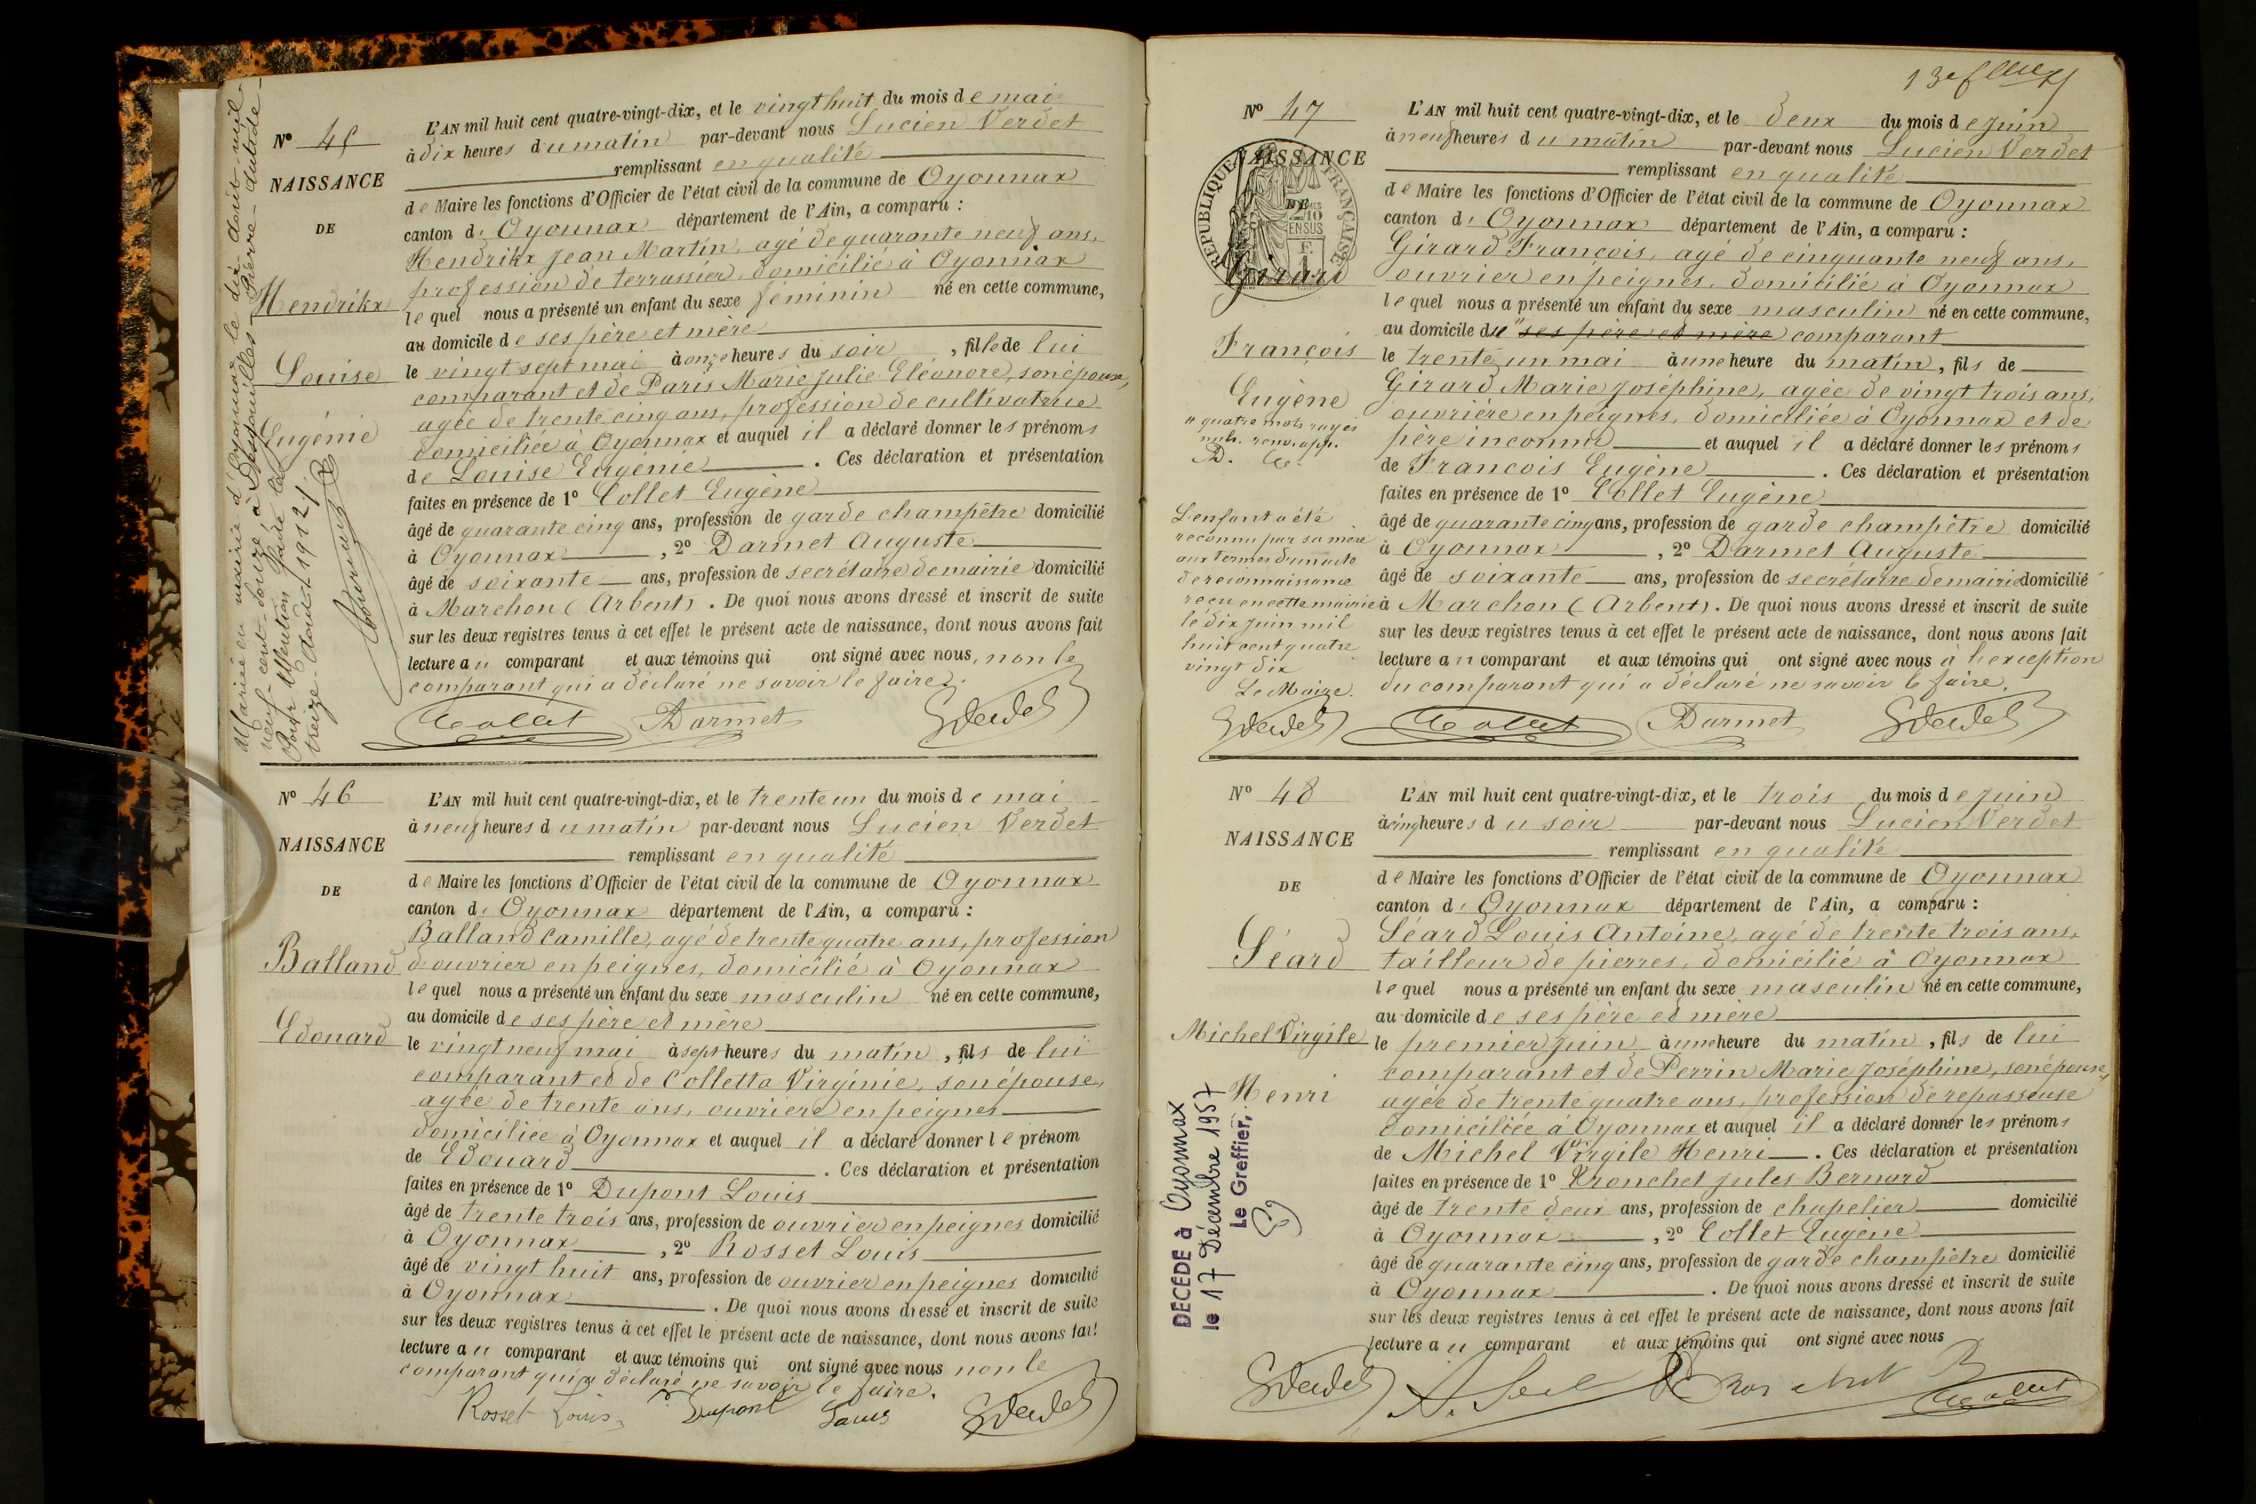 Nº 45
NAISSANCE
DE
Hendrikx
Louise
Eugénie
Mariée en mairie d'Oyonnax le dix août mil
neuf cent douze à Pierre
Pour Mention
treize août 1912
L'AN mil huit cent quatre-vingt-dix, et le vingt huit du mois de mai
à dix heures du matin par-devant nous Lucien Verdet
remplissant en qualité
de Maire les fonctions d'Officier de l'état civil de la commune de Oyonnax
canton d. Oyonnax département de l'Ain, a comparu :
Hendrikx Jean Martin, agé de quarante neuf ans,
profession de terrassier, domicilié à Oyonnax
lequel nous a présenté un enfant du sexe féminin né en cette commune,
au domicile de ses père et mère
le vingt sept mai à onze heures du soir, fille de lui
comparant et de Paris Marie Julie Eléonore, son épouse,
agée de trente cinq ans, profession de cultivatrice
domiciliée à Oyonnax et auquel il a déclaré donner les prénoms
de Louise Eugénie . Ces déclaration et présentation
faites en présence de 1º Collet Eugène
âgé de quarante cinq ans, profession de garde champêtre domicilié
à Oyonnax , 2º Darmet Auguste
âgé de soixante ans, profession de secrétaire de mairie domicilié
à Marchon (Arbent). De quoi nous avons dressé et inscrit de suite
sur les deux registres tenus à cet effet le présent acte de naissance, dont nous avons fait
lecture au comparant et aux témoins qui ont signé avec nous, non le
comparant qui a déclaré ne savoir le faire.
Collet Darmet LVerdet
Nº 46
NAISSANCE
DE
Balland
Edouard
L'AN mil huit cent quatre-vingt-dix, et le trente un du mois de mai
à neuf heures du matin par-devant nous Lucien Verdet
remplissant en qualité
de Maire les fonctions d'Officier de l'état civil de la commune de Oyonnax
canton d. Oyonnax département de l'Ain, a comparu :
Balland Camille, agé de trente quatre ans, profession
d'ouvrier en peignes, domicilié à Oyonnax
lequel nous a présenté un enfant du sexe masculin né en cette commune,
au domicile de ses père et mère
le vingt neuf mai à sept heures du matin, fils de lui
comparant et de Colletta Virginie, son épouse,
agée de trente ans, ouvrière en peignes
domiciliée à Oyonnax et auquel il a déclaré donner le prénom
de Edouard . Ces déclaration et présentation
faites en présence de 1º Dupont Louis
âgé de trente trois ans, profession de ouvrier en peignes domicilié
à Oyonnax , 2º Rosset Louis
âgé de vingt huit ans, profession de ouvrier en peignes domicilié
à Oyonnax . De quoi nous avons dressé et inscrit de suite
sur les deux registres tenus à cet effet le présent acte de naissance, dont nous avons fait
lecture au comparant et aux témoins qui ont signé avec nous non le
comparant qui a déclaré ne savoir le faire.
Rosset Louis Dupont Louis LVerdet
13e
Nº 47
NAISSANCE
DE
RÉPUBLIQUE FRANÇAISE
Girard
François
Eugène
" quatre mots rayés
nuls. renv. app.
D. C.
L'enfant a été
reconnu par sa mère
aux termes d'un acte
de reconnaissance
reçu en cette mairie
le dix juin mil
huit cent quatre
vingt dix
Le Maire.
LVerdet
L'AN mil huit cent quatre-vingt-dix, et le deux du mois de juin
à neuf heures du matin par-devant nous Lucien Verdet
remplissant en qualité
de Maire les fonctions d'Officier de l'état civil de la commune de Oyonnax
canton d. Oyonnax département de l'Ain, a comparu :
Girard François, agé de cinquante neuf ans,
ouvrier en peignes, domicilié à Oyonnax
lequel nous a présenté un enfant du sexe masculin né en cette commune,
au domicile du " ses père et mère comparant
le trente un mai à une heure du matin, fils de
Girard Marie Joséphine, agée de vingt trois ans,
ouvrière en peignes, domiciliée à Oyonnax et de
père inconnu et auquel il a déclaré donner les prénoms
de François Eugène . Ces déclaration et présentation
faites en présence de 1º Collet Eugène
âgé de quarante cinq ans, profession de garde champêtre domicilié
à Oyonnax , 2º Darmet Auguste
âgé de soixante ans, profession de secrétaire de mairie domicilié
à Marchon (Arbent). De quoi nous avons dressé et inscrit de suite
sur les deux registres tenus à cet effet le présent acte de naissance, dont nous avons fait
lecture au comparant et aux témoins qui ont signé avec nous à l'exception
du comparant qui a déclaré ne savoir le faire.
Collet Darmet LVerdet
Nº 48
NAISSANCE
DE
Séard
Michel Virgile
Henri
DÉCÉDÉ à Oyonnax
le 17 Décembre 1957
Le Greffier,
L'AN mil huit cent quatre-vingt-dix, et le trois du mois de juin
à cinq heures du soir par-devant nous Lucien Verdet
remplissant en qualité
de Maire les fonctions d'Officier de l'état civil de la commune de Oyonnax
canton d. Oyonnax département de l'Ain, a comparu :
Séard Louis Antoine, agé de trente trois ans,
tailleur de pierres, domicilié à Oyonnax
lequel nous a présenté un enfant du sexe masculin né en cette commune,
au domicile de ses père et mère
le premier juin à une heure du matin, fils de lui
comparant et de Perrin Marie Joséphine, son épouse,
agée de trente quatre ans, profession de repasseuse
domiciliée à Oyonnax et auquel il a déclaré donner les prénoms
de Michel Virgile Henri . Ces déclaration et présentation
faites en présence de 1º Tronchet Jules Bernard
âgé de trente deux ans, profession de chapelier domicilié
à Oyonnax , 2º Collet Eugène
âgé de quarante cinq ans, profession de garde champêtre domicilié
à Oyonnax . De quoi nous avons dressé et inscrit de suite
sur les deux registres tenus à cet effet le présent acte de naissance, dont nous avons fait
lecture au comparant et aux témoins qui ont signé avec nous
LVerdet Collet